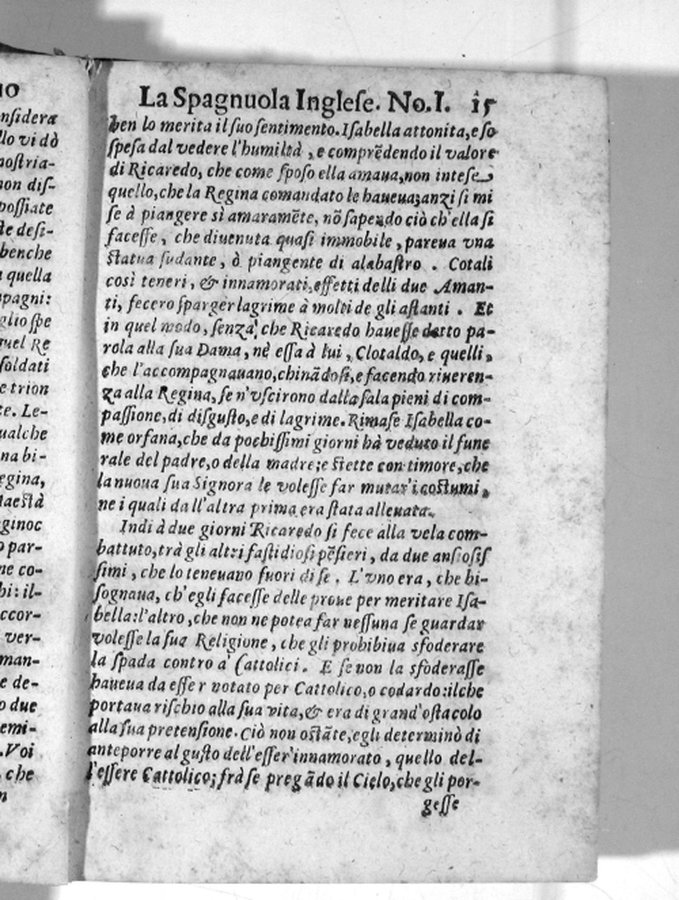 La Spagnuola Inglese. No.I. 15
ben lo merita il suo sentimento. Isabella attonita, e so
spesa dal vedere l'humiltà, e comprẽdendo il valore
di Ricaredo, che come sposo ella amaua, non intese
quello, che la Regina comandato le haueua; anzi si mi
se à piangere sì amaramẽte, nõ sapendo ciò ch'ella si
facesse, che diuenuta quasi immobile, pareua vna
statua sudante, ò piangente di alabastro. Cotali
così teneri, & innamorati, effetti delli due Aman-
ti, fecero sparger lagrime à molti de gli astanti. Et
in quel modo, senza, che Ricaredo hauesse detto pa-
rola alla sua Dama, nè essa à lui, Clotaldo, e quelli,
che l'accompagnauano, chinãdosi, e facendo riueren-
za alla Regina, se n'vscirono dalla sala pieni di com-
passione, di disgusto, e di lagrime. Rimase Isabella co-
me orfana, che da pochissimi giorni hà veduto il fune
rale del padre, o della madre; e stette con timore, che
la nuoua sua Signora le volesse far mutar'i costumi,
ne i quali dall'altra prima era stata alleuata.
Indi à due giorni Ricaredo si fece alla vela com-
battuto, trà gli altri fastidiosi pẽsieri, da due ansiosis
simi, che lo teneuano fuori di se. L'vno era, che bi-
sognaua, ch'egli facesse delle proue per meritare Isa-
bella: l'altro, che non ne potea far nessuna se guardar
volesse la sua Religione, che gli prohibiua sfoderare
la spada contro a' Cattolici. E se non la sfoderasse
haueua da esser notato per Cattolico, o codardo: ilche
portaua rischio alla sua vita, & era di grand'ostacolo
alla sua pretensione. Ciò non ostãte, egli determinò di
anteporre al gusto dell'esser'innamorato, quello del-
l'essere Cattolico; frà se pregãdo il Cielo, che gli por-
gesse